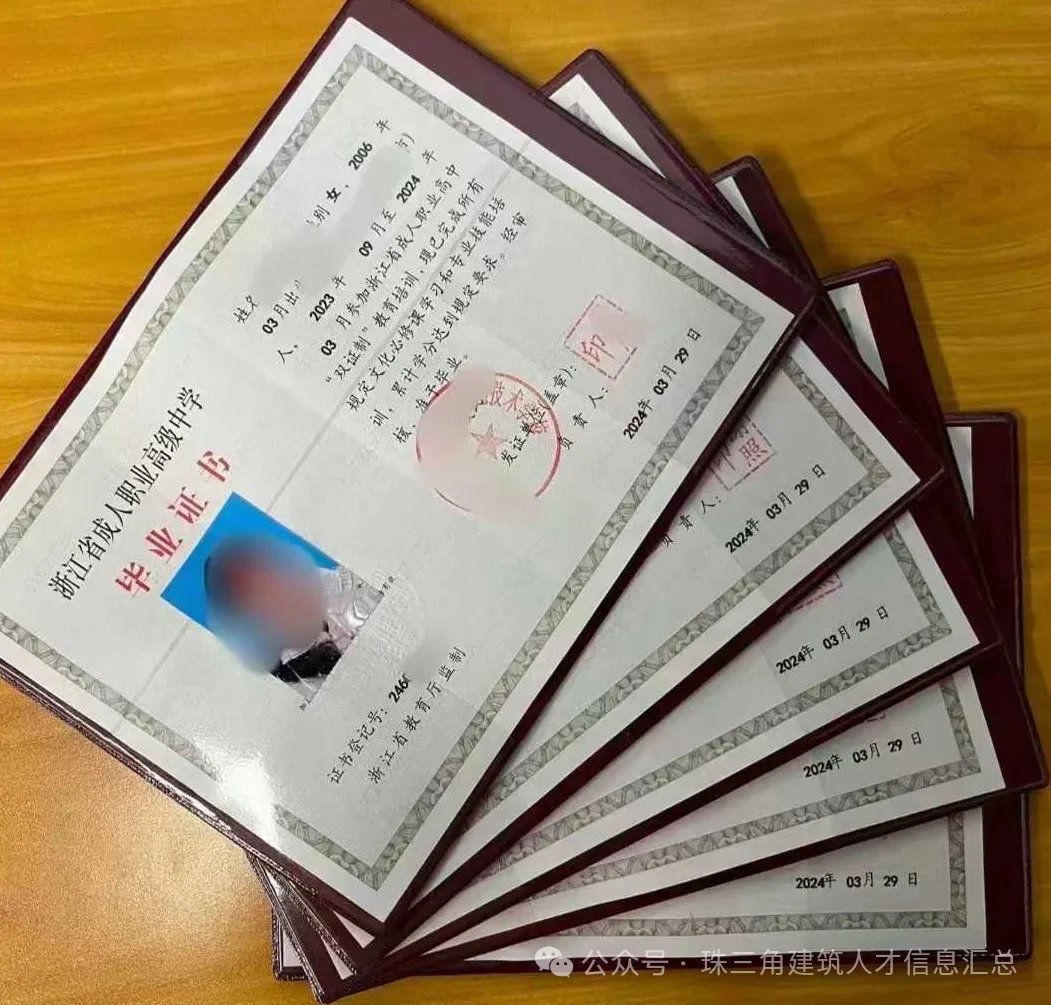 浙江省成人职业高级中学
毕业证书
证书登记号：246
浙江省教育厅监制
姓名
别 女，2006 年
03 月出
人，2023 年 09 月至 2024 年
03 月参加浙江省成人职业高中
“双证制”教育培训，现已完成所有
规定文化必修课学习和专业技能培
训，累计学分达到规定要求。经审
核，准予毕业。
技术
发证单位(盖章)：
负责人：
印
2024年 03月 29 日
负责人：
照
2024年 03月 29 日
2024年 03月 29 日
2024年 03月 29 日
2024年 03月 29 日
公众号·珠三角建筑人才信息汇总